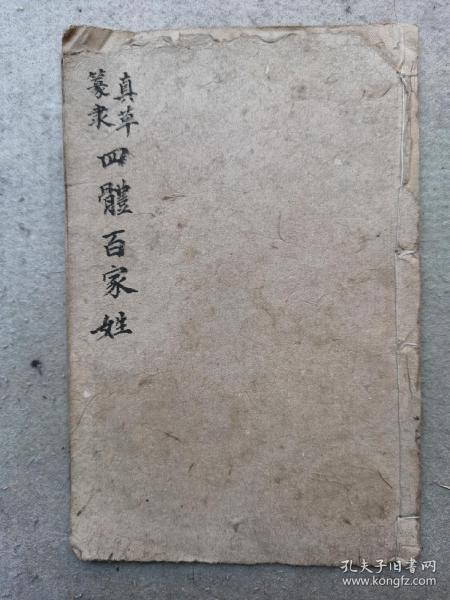 真草
篆隶
四體百家姓
孔夫子旧书网
www.kongfz.com